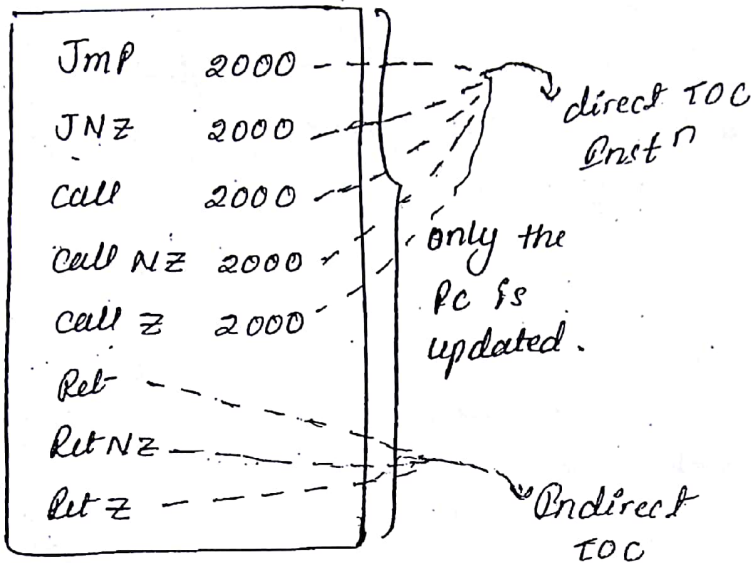 JmP 2000
JNZ 2000
Call 2000
Call NZ 2000
Call Z 2000
Ret
Ret NZ
Ret Z
direct TOC
Instn
only the
PC is
updated.
Indirect
TOC